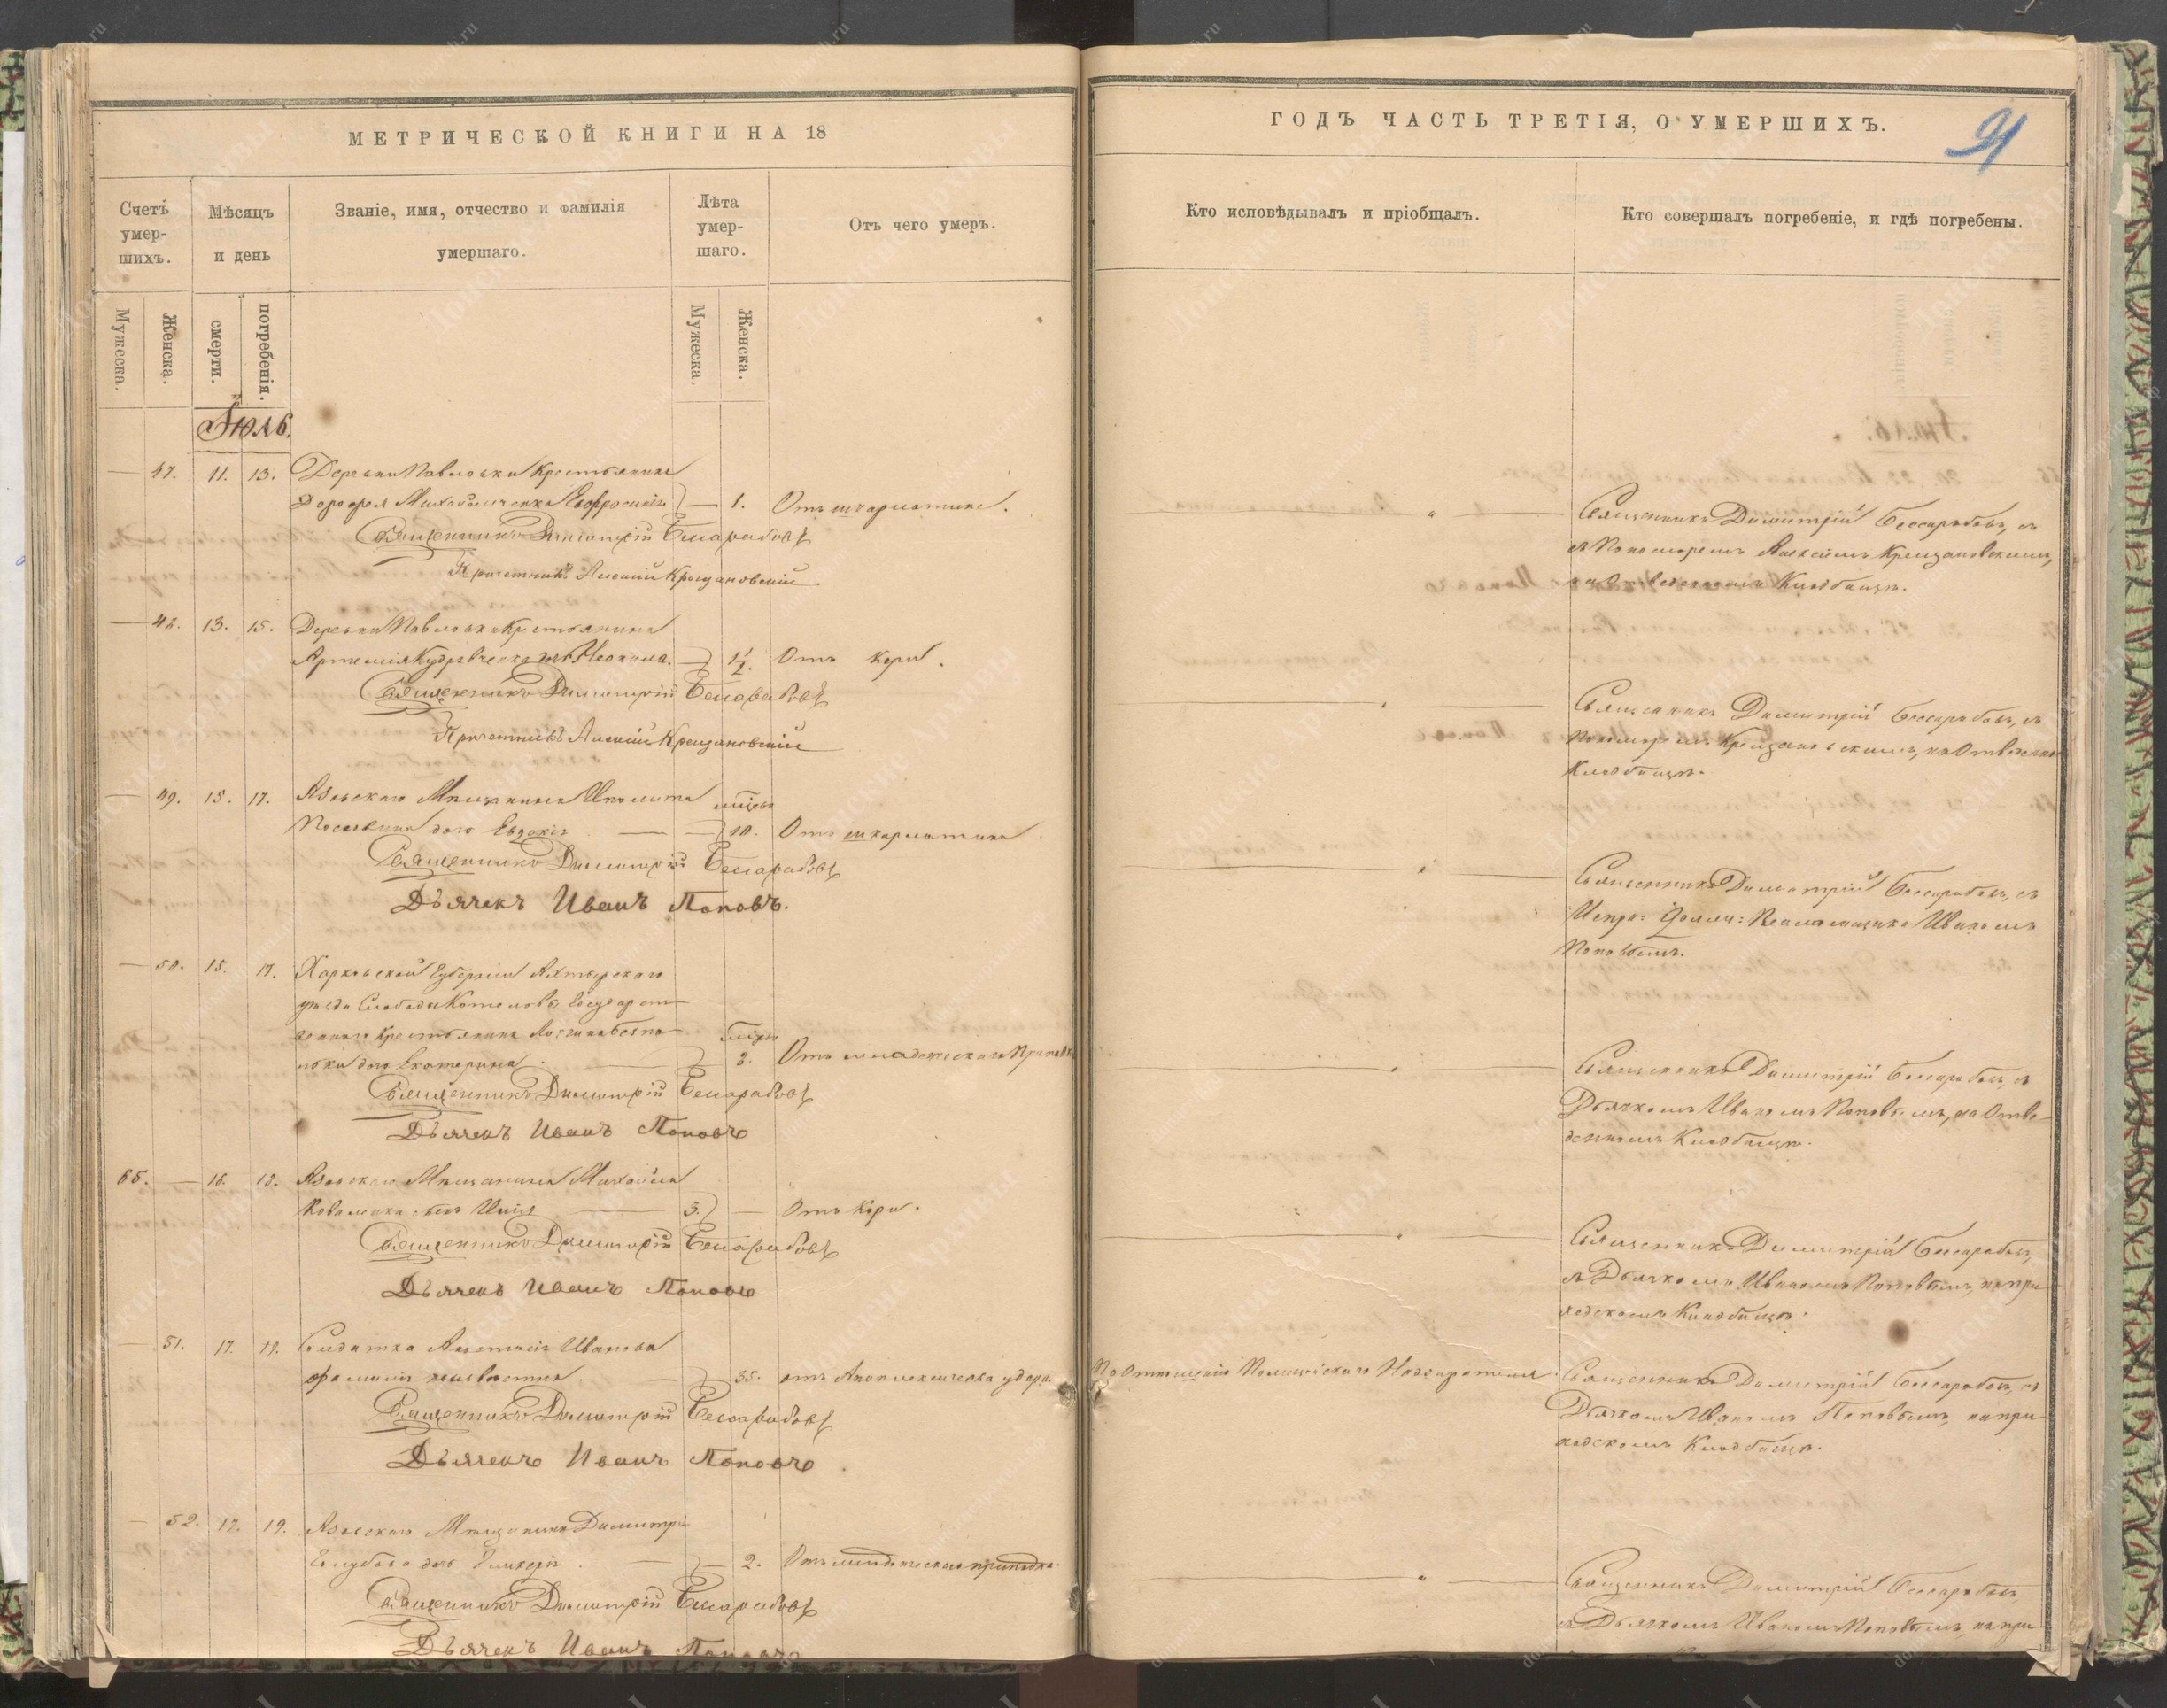 МЕТРИЧЕСКОЙ КНИГИ НА 18
Счетъ умер-шихъ.
Мѣсяцъ и день
Званіе, имя, отчество и фамилія умершаго.
Лѣта умер-шаго.
Отъ чего умеръ.
Мужеска.
Женска.
смерти.
погребенія.
Мужеска.
Женска.
Іюль.
— 47. 11. 13. Деревни Павловки Крестьянина
— 1. Отъ шкарлатины.
Священникъ Димитрій Бессарабовъ
Причетникъ Алексій Крещановскій
— 48. 13. 15. Деревни Павловки Крестьянина
— 1½. Отъ кори.
Священникъ Димитрій Бессарабовъ
Причетникъ Алексій Крещановскій
— 49. 15. 17. Азовскаго Мѣщанина
дочь Евдокія — 10. Отъ шкарлатины.
Священникъ Димитрій Бессарабовъ
Дьячекъ Иванъ Поповъ.
— 50. 15. 17. Харьковской Губерніи Ахтырскаго
уѣзда Слободы Котельвы Государст-
веннаго Крестьянина
дочь Екатерина. 2. Отъ младенческаго
Священникъ Димитрій Бессарабовъ
Дьячекъ Иванъ Поповъ
65. — 16. 18. Азовскаго Мѣщанина Михаила
Коваленка сынъ — 3. — Отъ кори.
Священникъ Димитрій Бессарабовъ
Дьячекъ Иванъ Поповъ
— 51. 17. 19. Солдатка Иванова
фамилія неизвѣстна. — 35. отъ Апоплексическа удара.
Священникъ Димитрій Бессарабовъ
Дьячекъ Иванъ Поповъ.
— 52. 17. 19. Азовскаго Мѣщанина Димитрія
Голубова дочь Гликерія — 2. Отъ младенческаго припадка.
Священникъ Димитрій Бессарабовъ
Дьячекъ Иванъ Поповъ
ГОДЪ ЧАСТЬ ТРЕТІЯ, О УМЕРШИХЪ.
91
Кто исповѣдывалъ и пріобщалъ.
Кто совершалъ погребеніе, и гдѣ погребены.
Священникъ Димитрій Бессарабовъ, съ
Пономаремъ Алексѣемъ Крещановскимъ,
на Отведенномъ Кладбищѣ.
Священникъ Димитрій Бессарабовъ, съ
Пономаремъ Крещановскимъ, на Отведенномъ
Кладбищѣ.
Священникъ Димитрій Бессарабовъ, съ
Иваномъ
Поповымъ.
Священникъ Димитрій Бессарабовъ, съ
Дьячкомъ Иваномъ Поповымъ, на Отве-
денномъ Кладбищѣ.
Священникъ Димитрій Бессарабовъ,
съ Дьячкомъ Иваномъ Поповымъ, на при-
ходскомъ Кладбищѣ.
По Отношенію Полицейскаго Надзирателя. Священникъ Димитрій Бессарабовъ, съ
Дьячкомъ Иваномъ Поповымъ, на при-
ходскомъ Кладбищѣ.
Священникъ Димитрій Бессарабовъ
съ Дьячкомъ Иваномъ Поповымъ, на при-